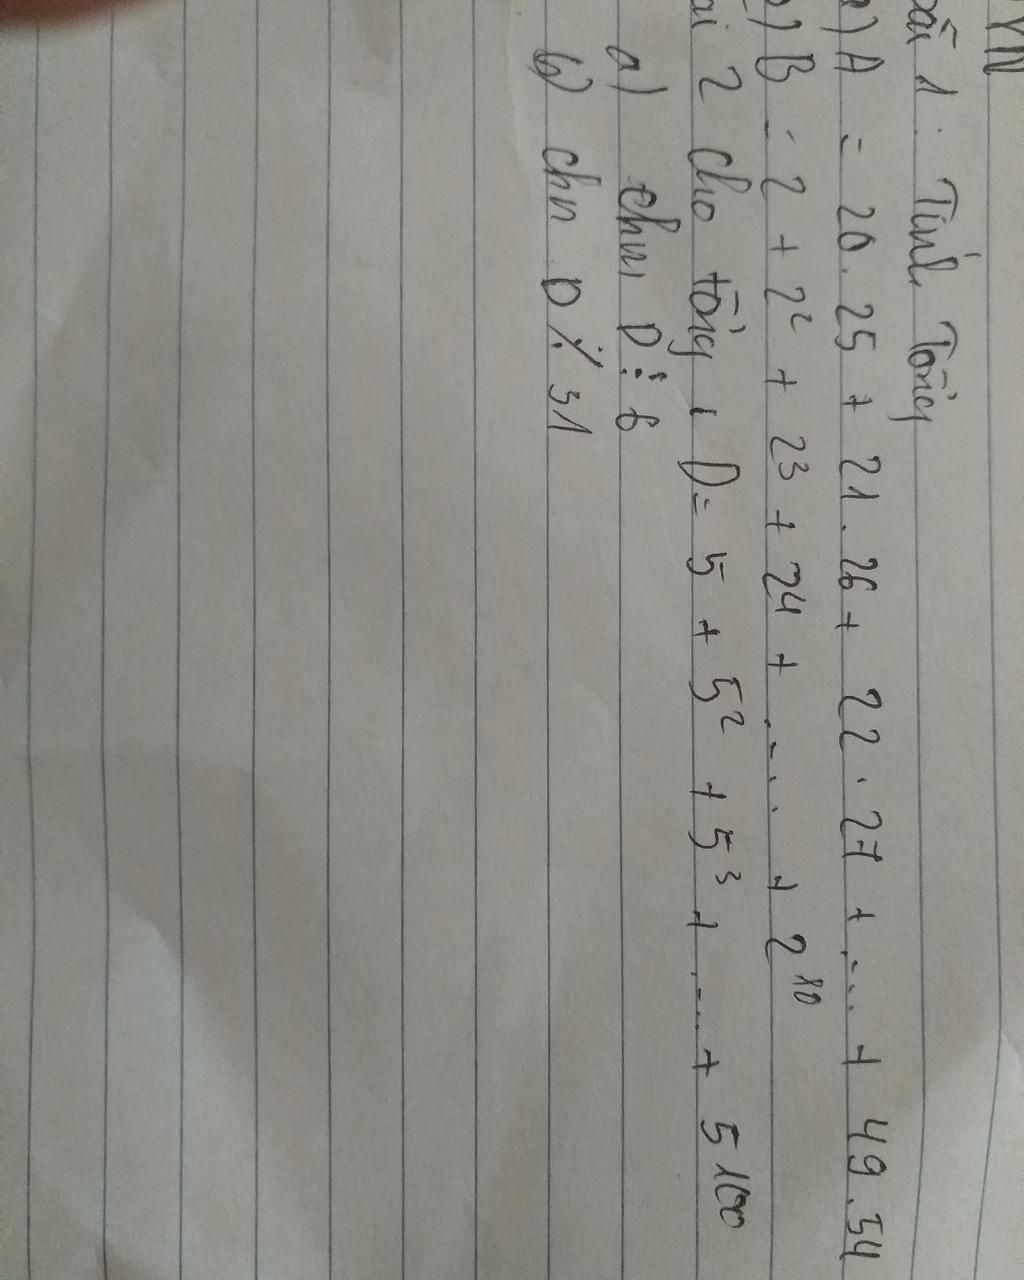 YN
bài 1: Tính Tổng
a) A = 20.25 + 21.26 + 22.27 + .... + 49.54
b) B = 2 + 2² + 2³ + 2⁴ + ..... + 2¹⁰
bài 2 cho tổng: D = 5 + 5² + 5³ + .... + 5¹⁰⁰
a) chm D ⋮ 6
b) chn D ⋮̸ 31